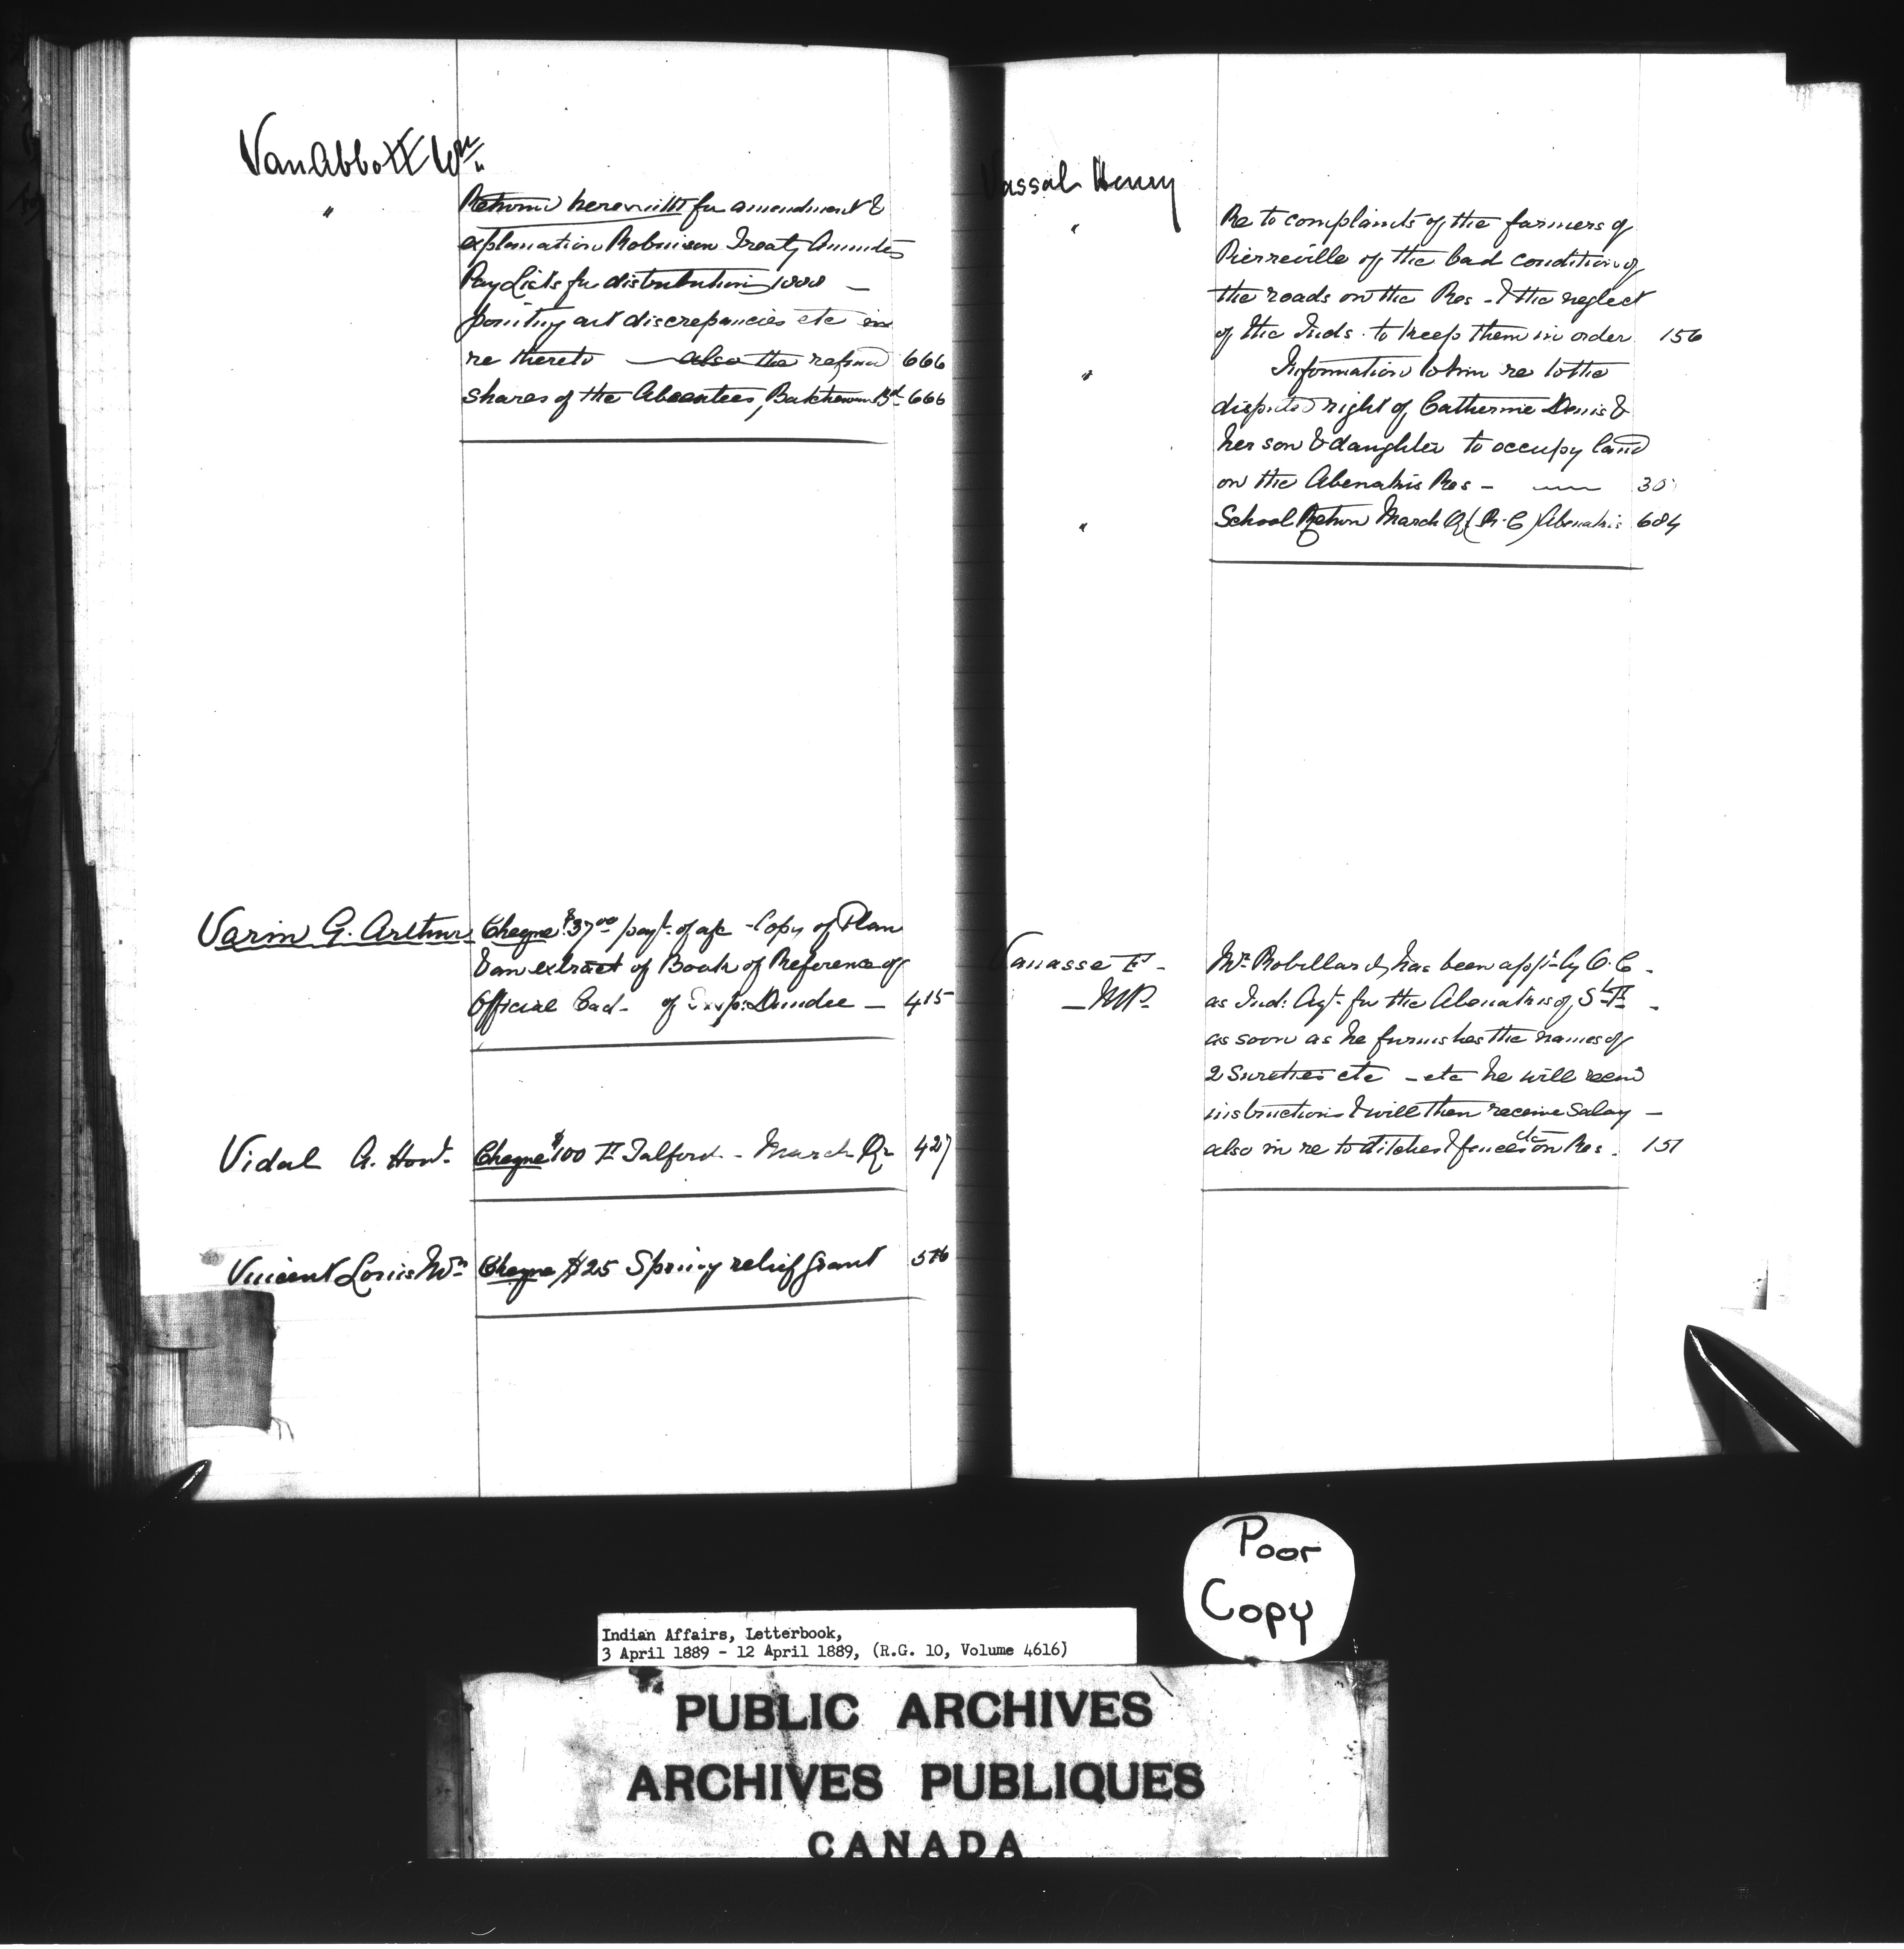 Van Abbott Wm
" Returns herewith for amendment &
explanation Robinson Treaty Annuities
Pay Lists for distribution 1888 —
pointing out discrepancies etc in
re thereto — also the refund 666
shares of the Absentees, Batchewana Bd 666
Varin G. Arthur Cheque $37.00 payt. of a/c - Copy of Plan
& an extract of Book of Reference of
Official Cad - of Dundee — 415
Vidal A. Hon. Cheque $100 Talford - March Qr 427
Vincent Louis Mrs Cheque $25 Spring relief grant
Vassal Henry
" Re to complaints of the farmers of
Pierreville of the bad condition of
the roads on the Res - & the neglect
of the Inds. to keep them in order 156
" Information to him re to the
disputed right of Catherine Denis &
her son & daughter to occupy land
on the Abenakis Res -
" School Return March Qr (R.C) Abenakis 684
Vanasse F -
— M.P. -
Mr Robillard has been app'd by O.C -
as Ind: Agt. for the Abenakis of St F -
as soon as he furnishes the names of
2 Sureties etc - etc he will
instructions & will then receive Salary —
also in re to ditches & fences etc on Res. 151
Poor
Copy
Indian Affairs, Letterbook,
3 April 1889 - 12 April 1889, (R.G. 10, Volume 4616)
PUBLIC ARCHIVES
ARCHIVES PUBLIQUES
CANADA